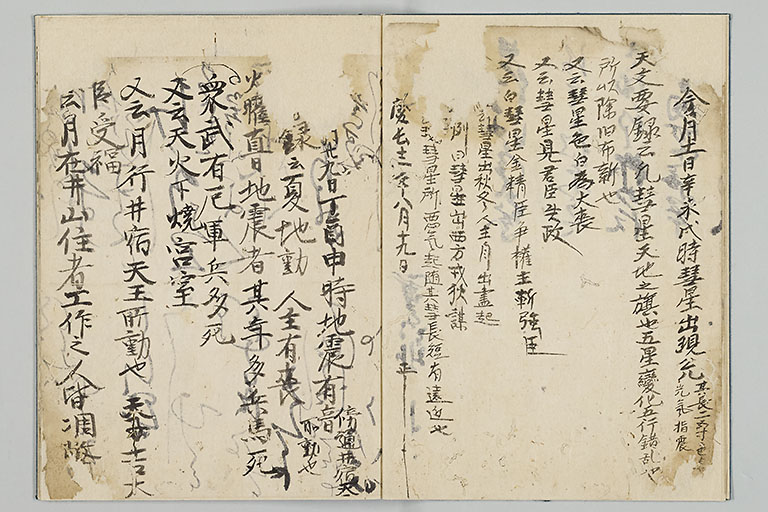 今月十一日辛未戌時彗星出現
其長二
光気指震
天文要録云凡彗星天地之旗也五星變化五行錯乱也
所以除旧布新也
又云彗星色白為大喪
又云彗星見君臣失政
又云白彗星金精臣争權主斬強臣
彗星出秋冬人主
彗星出西方戎狄謀
彗星所悪気起随其彗長短有遠近也
慶長十二年八月十九日
廿九日丁酉申時地震有音
傍通井宿
所動也
録云夏地動人主有喪
火曜直日地震者其年多兵馬死
衆武有厄軍兵多死
又云天火下燒宮室
又云月行井宿天王所動也
臣受福
云月在井山住者工作之人皆凋